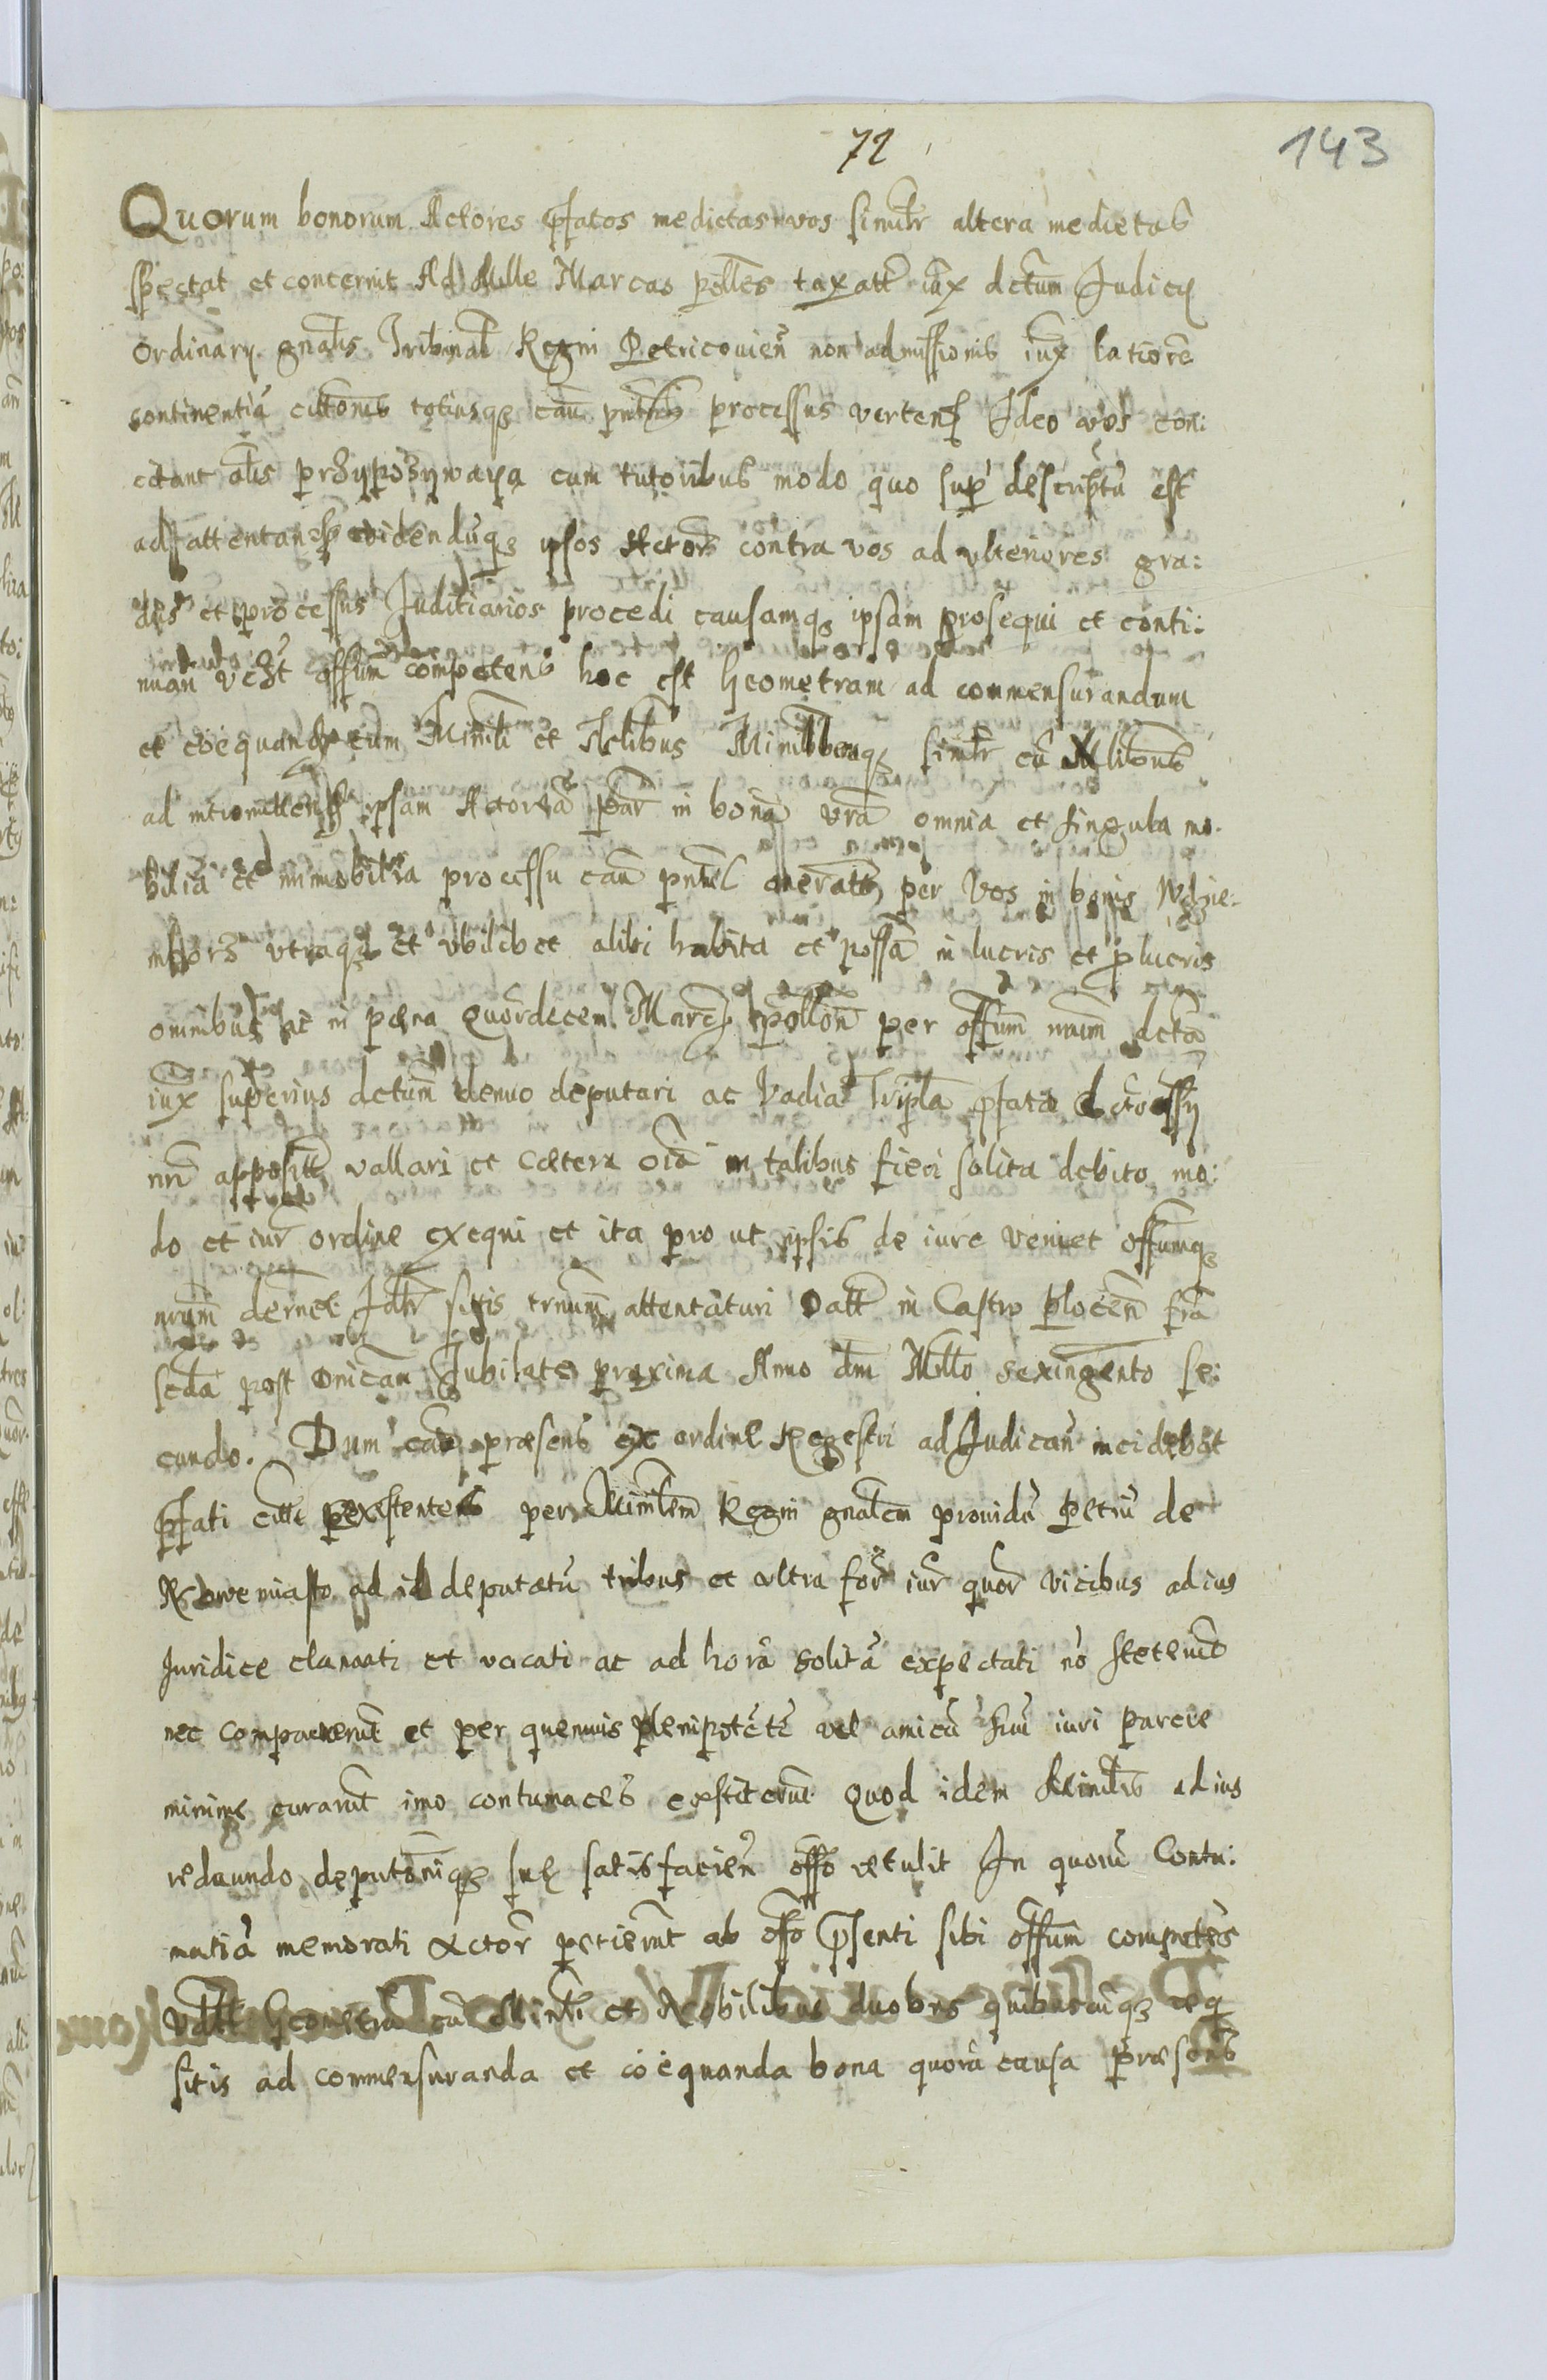 72
143
Quorum bonorum Actores pfatos medietas vos similr altera medietas
spectat et concernit Ad Mille Marcas polles taxatt iux dctum Judicij
Ordinarij gnalis Tribunal Regni Petricouien non admissionis iux latiore
continentiā cittonis totiusq caū pntis processus verten Ideo vos con:
citant als przypozywaya cum tutoribus modo quo sup descriptū est
ad attentan videnduq ipsos Actor contra vos ad vlteriores gra:
dus et processus Juditiarios procedi causamq ipsam prosequi et conti:
nuan offum competens hoc est Geometram ad commensurandum
et coequand cum Minrli et Nlibus Minrlibusq similr cū Nlibus
ad intromitten ipsam Actoreā par in bona vra omnia et singula mo:
bilia et immobilia processu caū pntis oneratt per Vos in bonis
utraq et vbilibet alibi habita et possā in lucris et plucris
omnibus ac in pœna Quordecem Marc pollon per offum nrum dcta
iux superius dctum denuo deputari ac Vadia Tripla pfata dcto offij
nri appositt vallari et Cætera oia in talibus fieri solita debito mo:
do et iur ordine exequi et ita pro ut ipsis de iure veniet offumq
nrum dernet Idr sitis trnum attentaturi Datt in Castro plocen fra
scda post Dnicam Jubilate proxima Anno dni Millo sexingento se:
cundo. Dum caū præsens ex ordine Regestri ad Judican incidebat
pfati citti existentes per Minrlem Regni gnalem prouidū petrū de
ad id deputatū tribus et vltra for iur quor vicibus ad ius
Juridice clamati et vocati ac ad horā solitā expectati nō steterūt
nec comparuerūt et per quemuis plenipotētē vel amicū suū iuri parere
minime curarūt imo contumaces exstiterūt Quod idem Minrlis ad ius
redeundo deputoniq suæ satisfacien offo retulit In quorū Contu:
matiā memorati Actor petierūt ab offo psenti sibi offum competēs
vdtt Geometrā cū Minrli et Nobilibus duobus quibuscuiq req
sitis ad commensuranda et coequanda bona quorū causa præsens